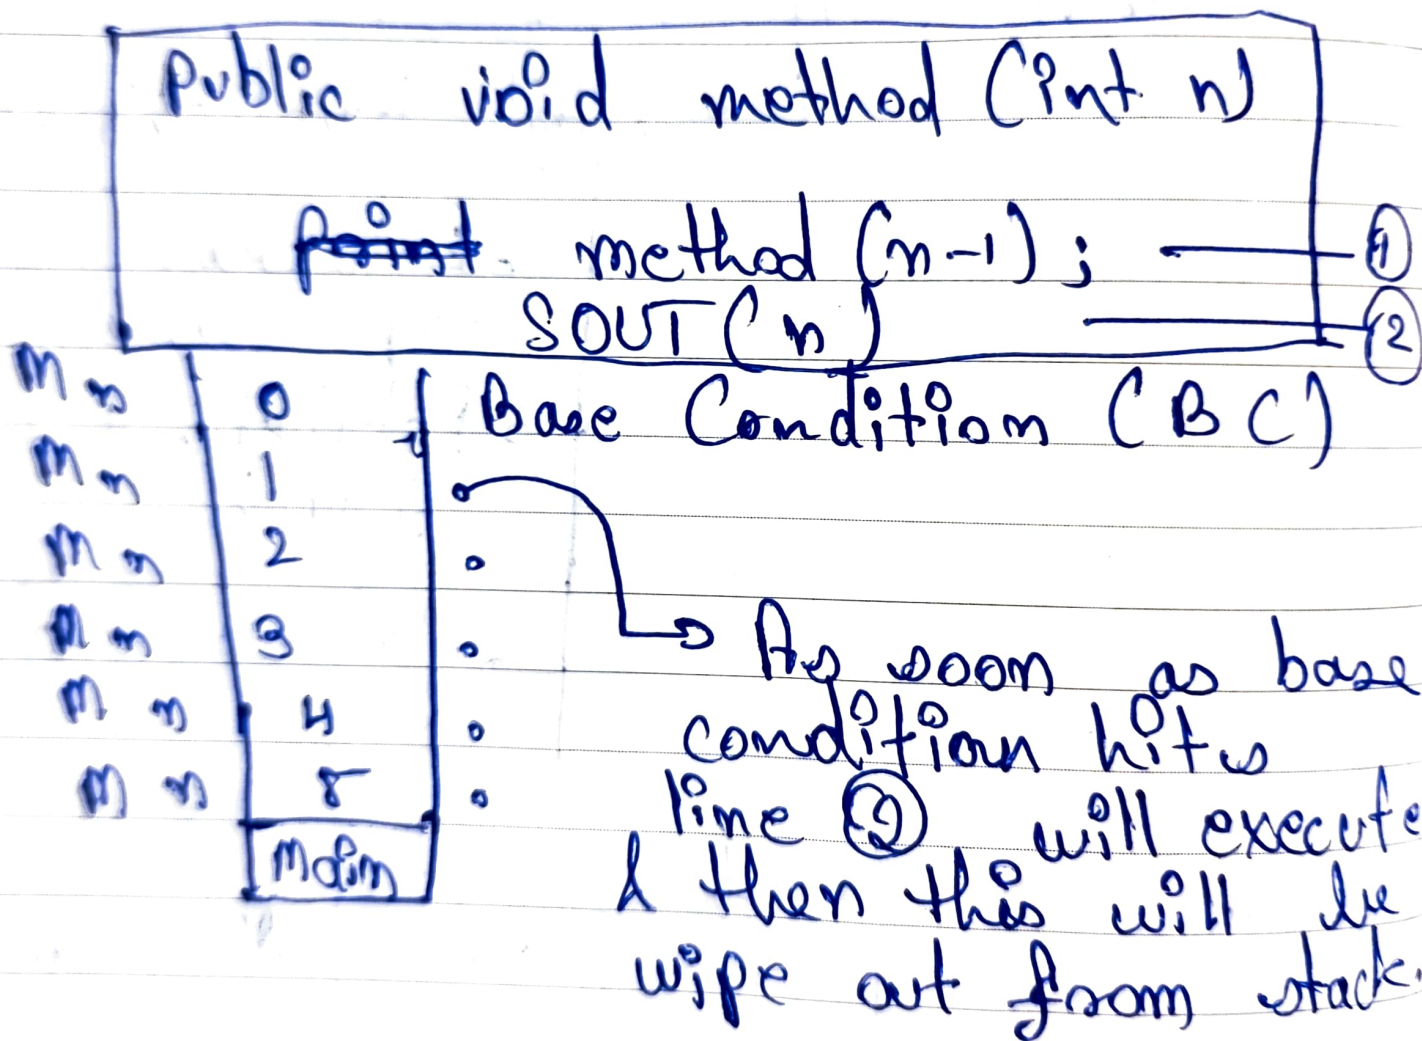 Public void method (int n)
method (n-1) ; ①
SOUT (n) ②
M n 0 Base Condition (BC)
M n 1
M n 2
M n 3
M n 4
M n 5
Main
As soon as base
condition hits
line ② will execute
& then this will be
wipe out from stack.